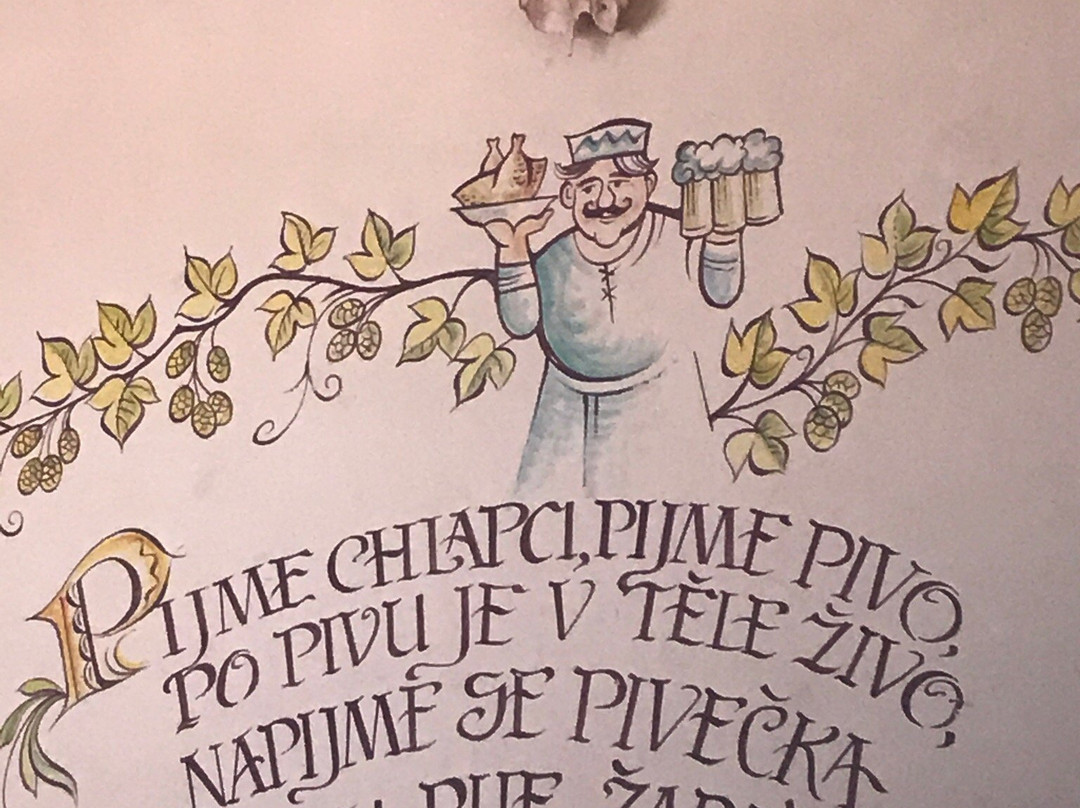 PIJME CHLAPCI, PIJME PIVO,
PO PIVU JE V TĚLE ŽIVO,
NAPIJME SE PIVEČKA
PIJE